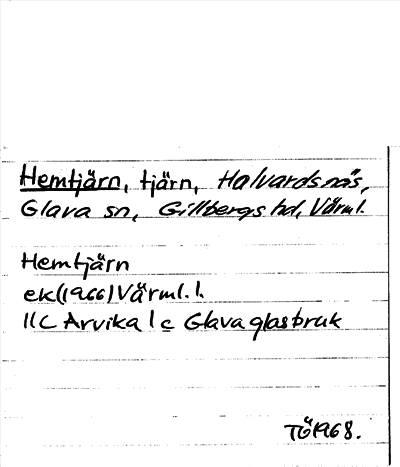 Hemtjärn, tjärn, Halvardsnäs,
Glava sn, Gillbergs hd, Värml.
Hemtjärn
ek(1966) Värml. l.
11C Arvika 1 c Glava glasbruk
TÖ 1968.